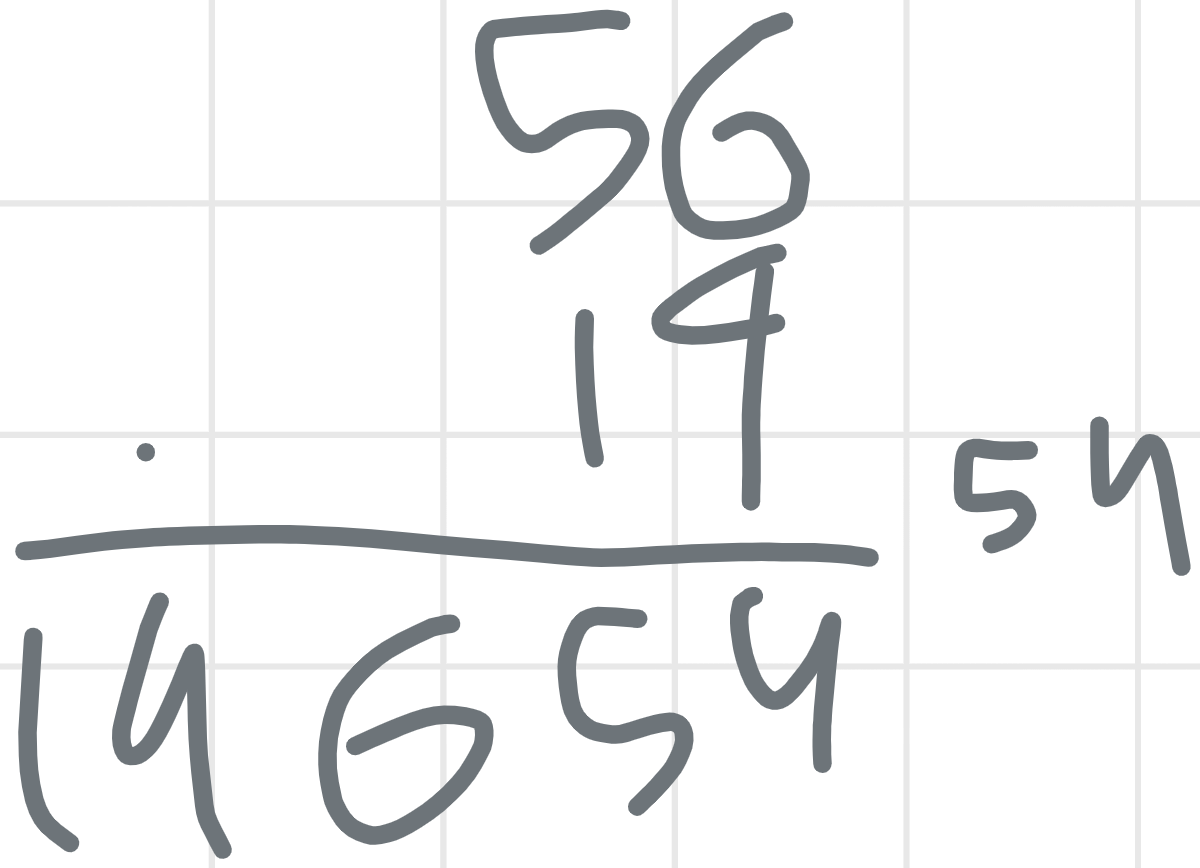 56
19
54
14654